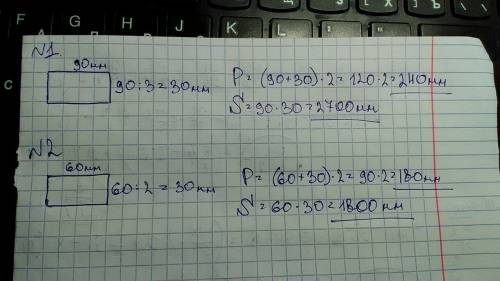 N1
90мм
90:3=30мм
P=(90+30)·2=120·2=240мм
S=90·30=2700мм
N2
60мм
60:2=30мм
P=(60+30)·2=90·2=180мм
S=60·30=1800мм